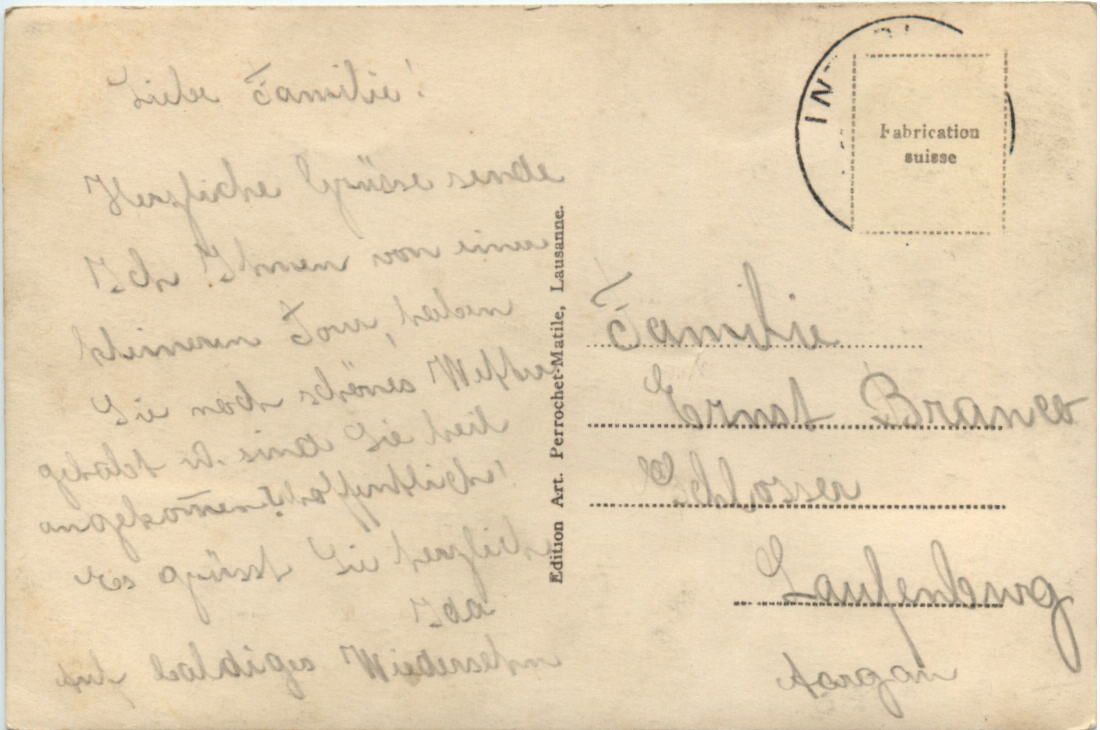 Liebe Familie!
Herzliche Grüsse sende
Ich von
haben
Sie noch schönes Wetter
gehabt Sie
angekommen? hoffentlich!
es grüsst Sie herzlich
Ida
Auf baldiges Wiedersehen
Edition Art. Perrochet-Matile, Lausanne.
IN
Fabrication
suisse
Familie
Ernst
Schlosser
Laufenburg
Aargau